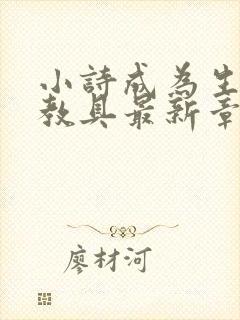 小詩成為生
教具最新章
廖材河